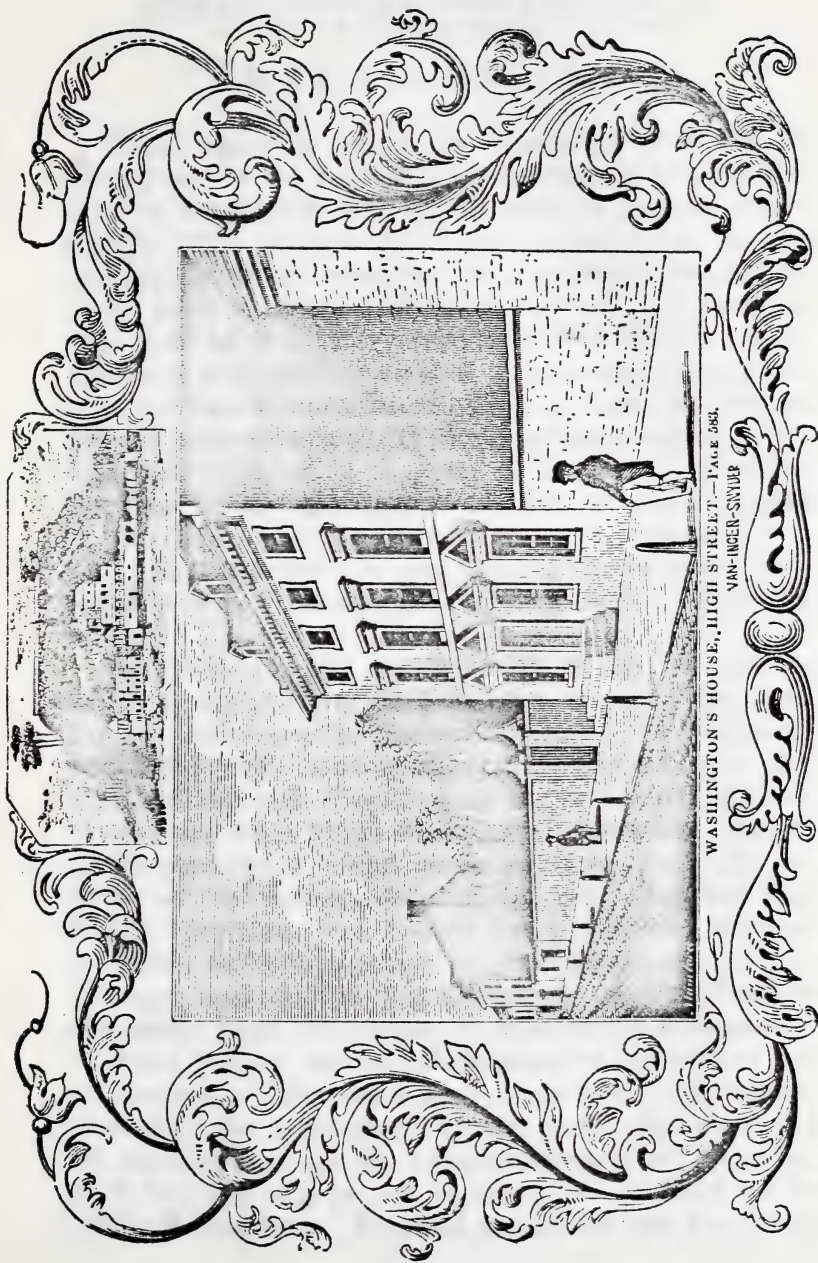 WASHINGTON'S HOUSE, HIGH STREET.—PAGE 583.
VAN-INGEN-SNYDER